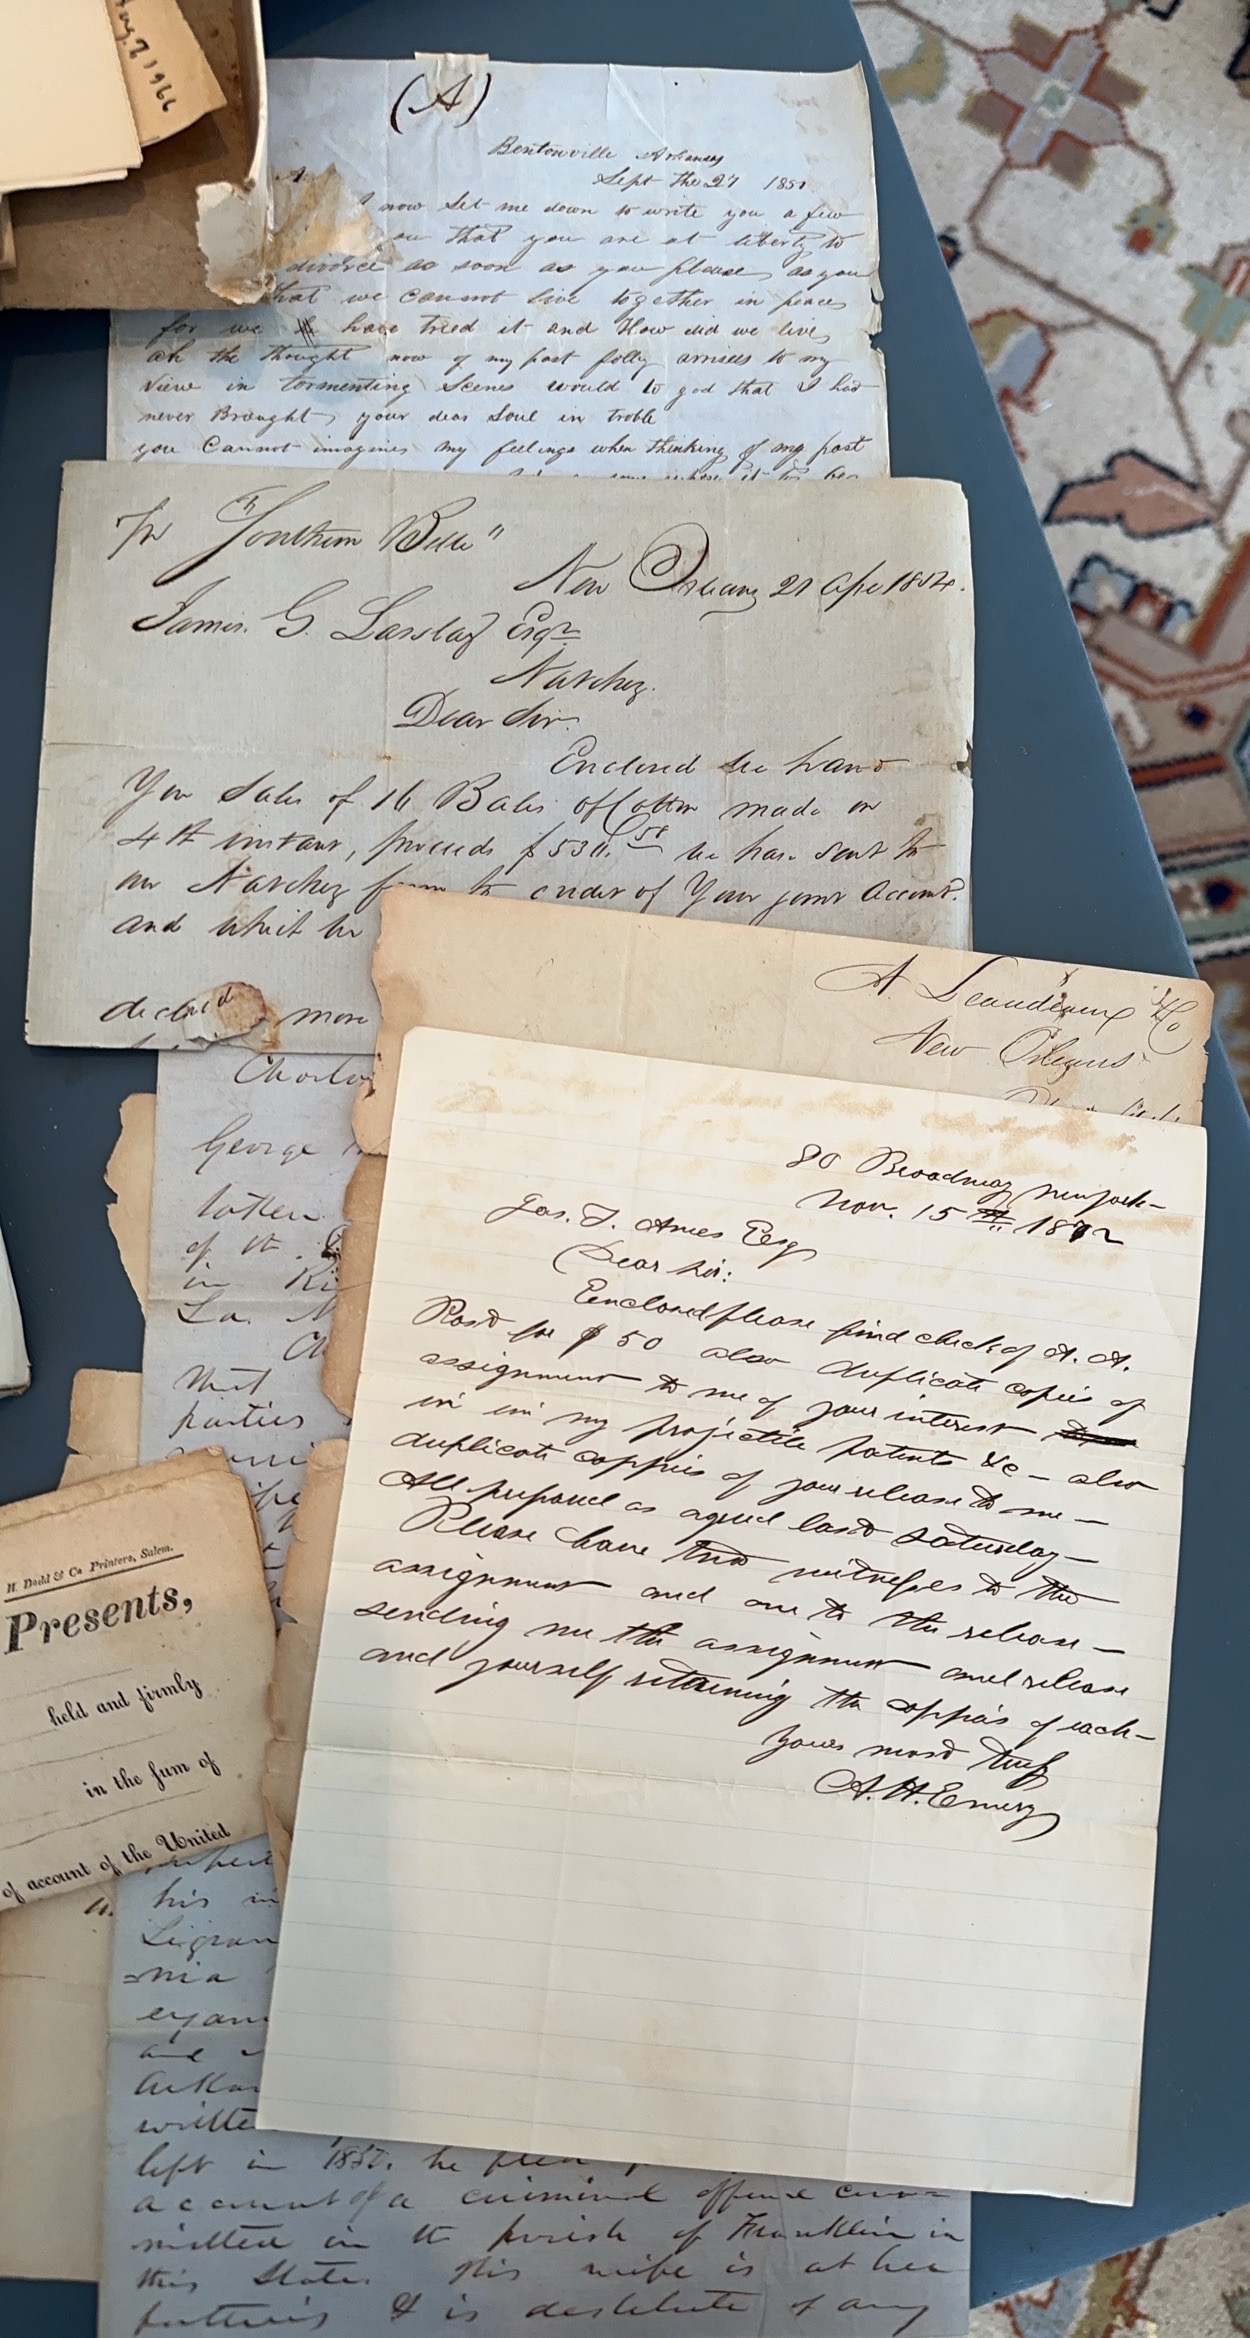 Aug. 2 1966
(A)
Bentonville Arkansas
Sept the 27 185
now set me down to write you a few
you that you are at liberty to
divorce as soon as you please, as you
that we cannot live together in peace
for we have tried it and How did we live
ah the thought now of my past folly arrises to my
view in tormenting Scenes would to god that I had
never Braught your dear Soul in troble
you Cannot imagines my feelings when thinking of my past
Pr "Southern Belle"
New Orleans 21 Ape 1854.
James. G. Esqr
Natchez.
Dear Sir.
Enclosed we hand
You Sales of 16 Bales of Cotton made on
4th instant, proceeds $ we have sent to
our Natchez to order of Your joint account.
and which
more
A. &Co
New Orleans
George
taken
of it.
in
La.
that
parties
80 Broadway New york
Nov. 15th 1872
Jas. T. Ames Esq
Dear Sir:
Enclosed please find check of A. A.
Post for $50 also duplicate copies of
assignment to me of your interest
in in my projectile patents &c - also
duplicate coppies of your release to me -
All prepared as agreed last Saturday -
Please have two witnesses to the
assignment and one to the release -
sending me the assignment and release
and yourself retaining the coppies of each -
Yours most truly
A. H. Emery
H. Dodd & Co Printers, Salem.
Presents,
held and firmly
in the sum of
of account of the United
his in
-nia
exam
and
Arkan
written
left in 1852. he
account of a criminal offense com=
mitted in the parish of Franklin in
this State. His wife is at her
father's & is destitute of any